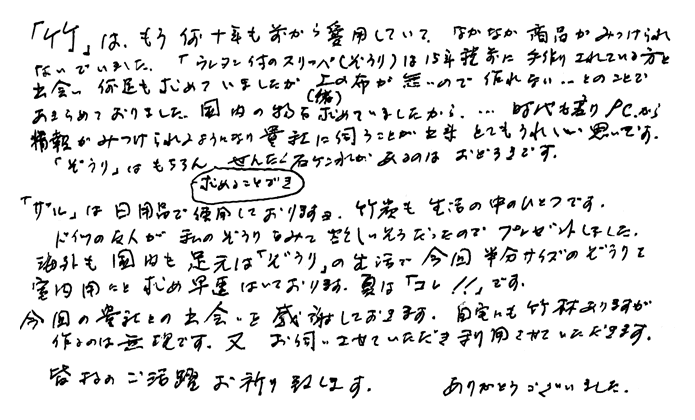 「竹」は、もう何十年も前から愛用していて、なかなか商品がみつけられ
ないでいました。「ウレタン付のスリッパ(ぞうり)は15年程前に手作りされている方と
出会い 何足も求めていましたが 上の布が無いので 作れない… とのことで
(緒)
あきらめておりました。国内の物を求めていましたから、… 時代も変り PCから
情報がみつけられるようになり 貴社に伺うことが出来 とてもうれしい思いです。
「ぞうり」はもちろん、せんたく石ケン入れがあるのは おどろきです。
求めることでき
「ザル」は日用品で使用しております。竹炭も生活の中のひとつです。
ドイツの友人が 私のぞうりをみて 楽しいそうだったので プレゼントしました。
海外も国内も足元は「ぞうり」の生活で 今回 半分サイズのぞうりを
室内用にと求め 早速はいております。夏は「コレ!!」です。
今回の貴社との出会いを感謝しております。自宅にも竹林ありますが
作るのは無理です。又 お伺いさせていただき 利用させていただきます。
皆様のご活躍 お祈り致します。 ありがとうございました。